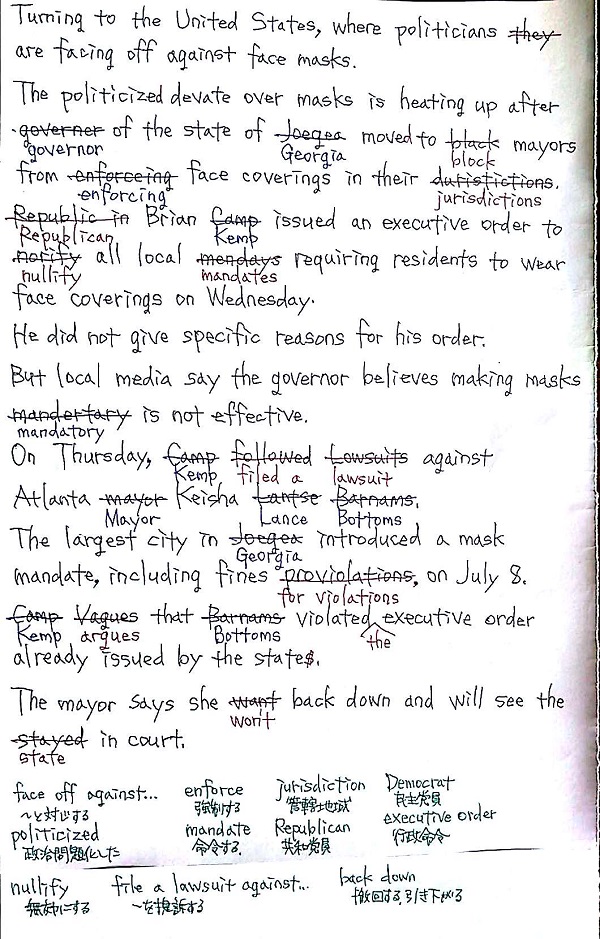 Turning to the United States, where politicians they
are facing off against face masks.
The politicized devate over masks is heating up after
governer of the state of Joegea moved to black mayors
governor Georgia block
from enforceing face coverings in their duristictions.
enforcing jurisdictions
Republic in Brian Camp issued an executive order to
Republican Kemp
notify all local mendays requiring residents to wear
nullify mandates
face coverings on Wednesday.
He did not give specific reasons for his order.
But local media say the governor believes making masks
mandertary is not effective.
mandatory
On Thursday, Camp followed Lowsuits against
Kemp filed a lawsuit
Atlanta mayor Keisha Lantse Barnams.
Mayor Lance Bottoms
The largest city in Joegea introduced a mask
Georgia
mandate, including fines proviolations, on July 8.
for violations
Camp Vagues that Barnams violated executive order
Kemp argues Bottoms the
already issued by the states.
The mayor says she want back down and will see the
won't
stayed in court.
state
face off against... enforce jurisdiction Democrat
〜と対じする 強制する 管轄地域 民主党員
politicized mandate Republican executive order
政治問題化した 命令する 共和党員 行政命令
nullify file a lawsuit against... back down
無効にする 〜を提訴する 撤回する, 引き下がる